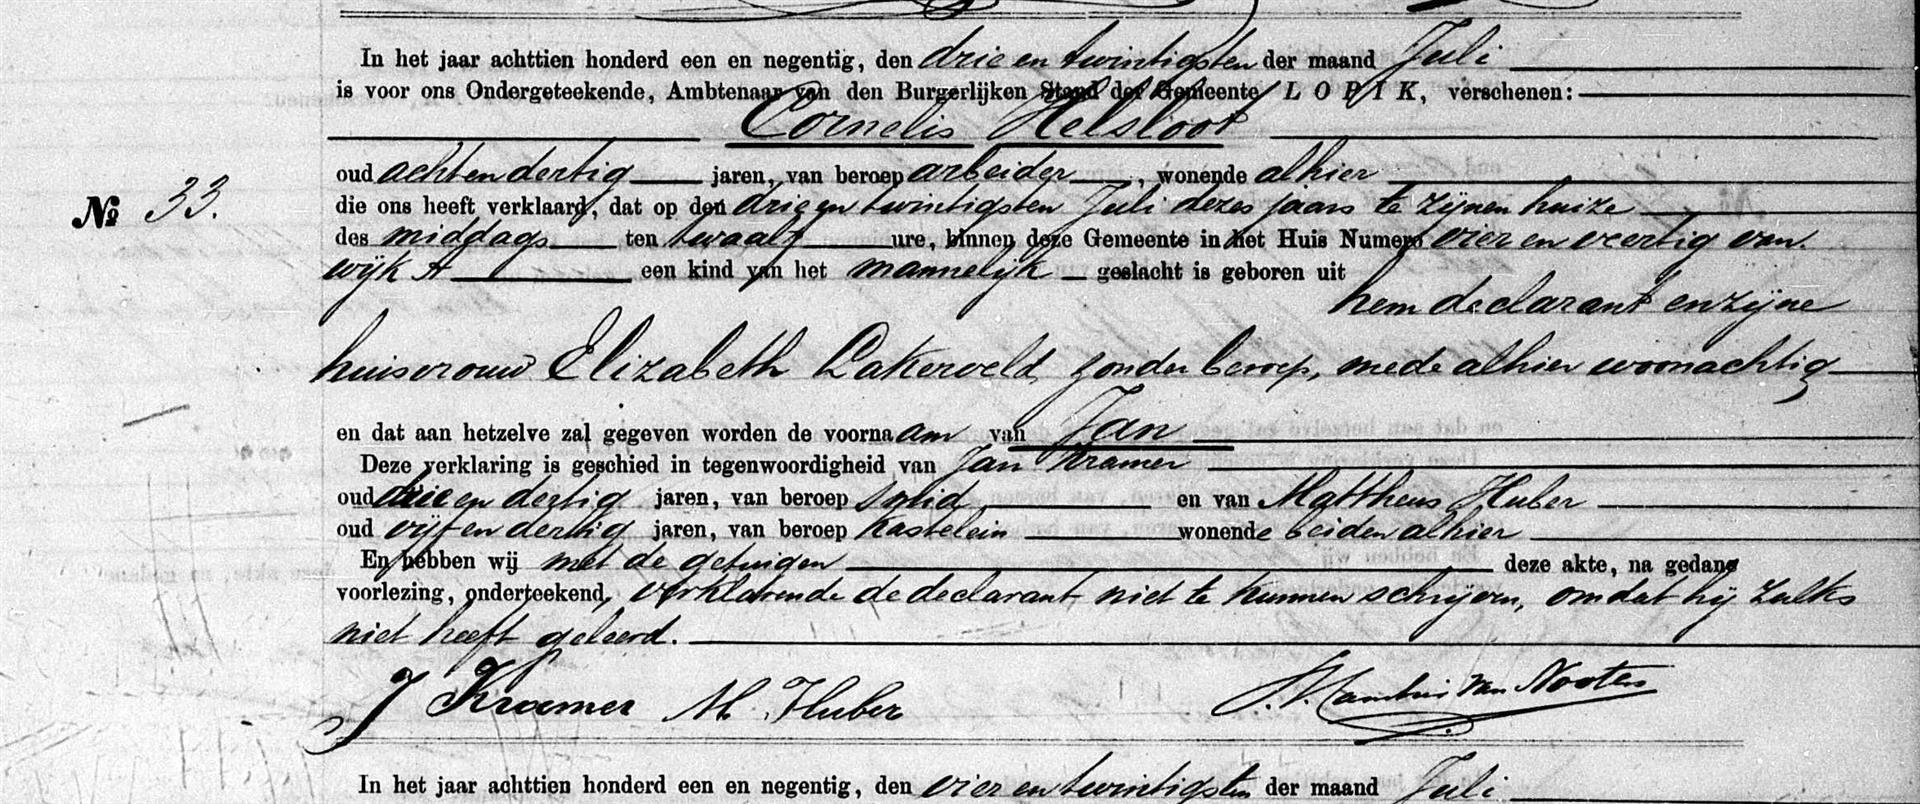 In het jaar achttien honderd een en negentig, den drie en twintigsten der maand Juli
is voor ons Ondergeteekende, Ambtenaar van den Burgerlijken Stand der Gemeente LOPIK, verschenen:
Cornelis Helsloot
oud acht en dertig jaren, van beroep arbeider, wonende alhier
№ 33.
die ons heeft verklaard, dat op den drie en twintigsten Juli dezes jaars te zijnen huize
des middags ten twaalf ure, binnen deze Gemeente in het Huis Numero vier en veertig van
wijk A een kind van het mannelijk geslacht is geboren uit
hem declarant en zijne
huisvrouw Elizabeth Lakerveld, zonder beroep, mede alhier woonachtig
en dat aan hetzelve zal gegeven worden de voornaam van Jan
Deze verklaring is geschied in tegenwoordigheid van Jan Kramer
oud drie en dertig jaren, van beroep smid en van Mattheus Huber
oud vijf en dertig jaren, van beroep kastelein wonende beiden alhier
En hebben wij met de getuigen deze akte, na gedane
voorlezing, onderteekend, verklarende de declarant niet te kunnen schrijven, omdat hij zulks
niet heeft geleerd.
J Kramer M. Huber van Nooten
In het jaar achttien honderd een en negentig, den vier en twintigsten der maand Juli